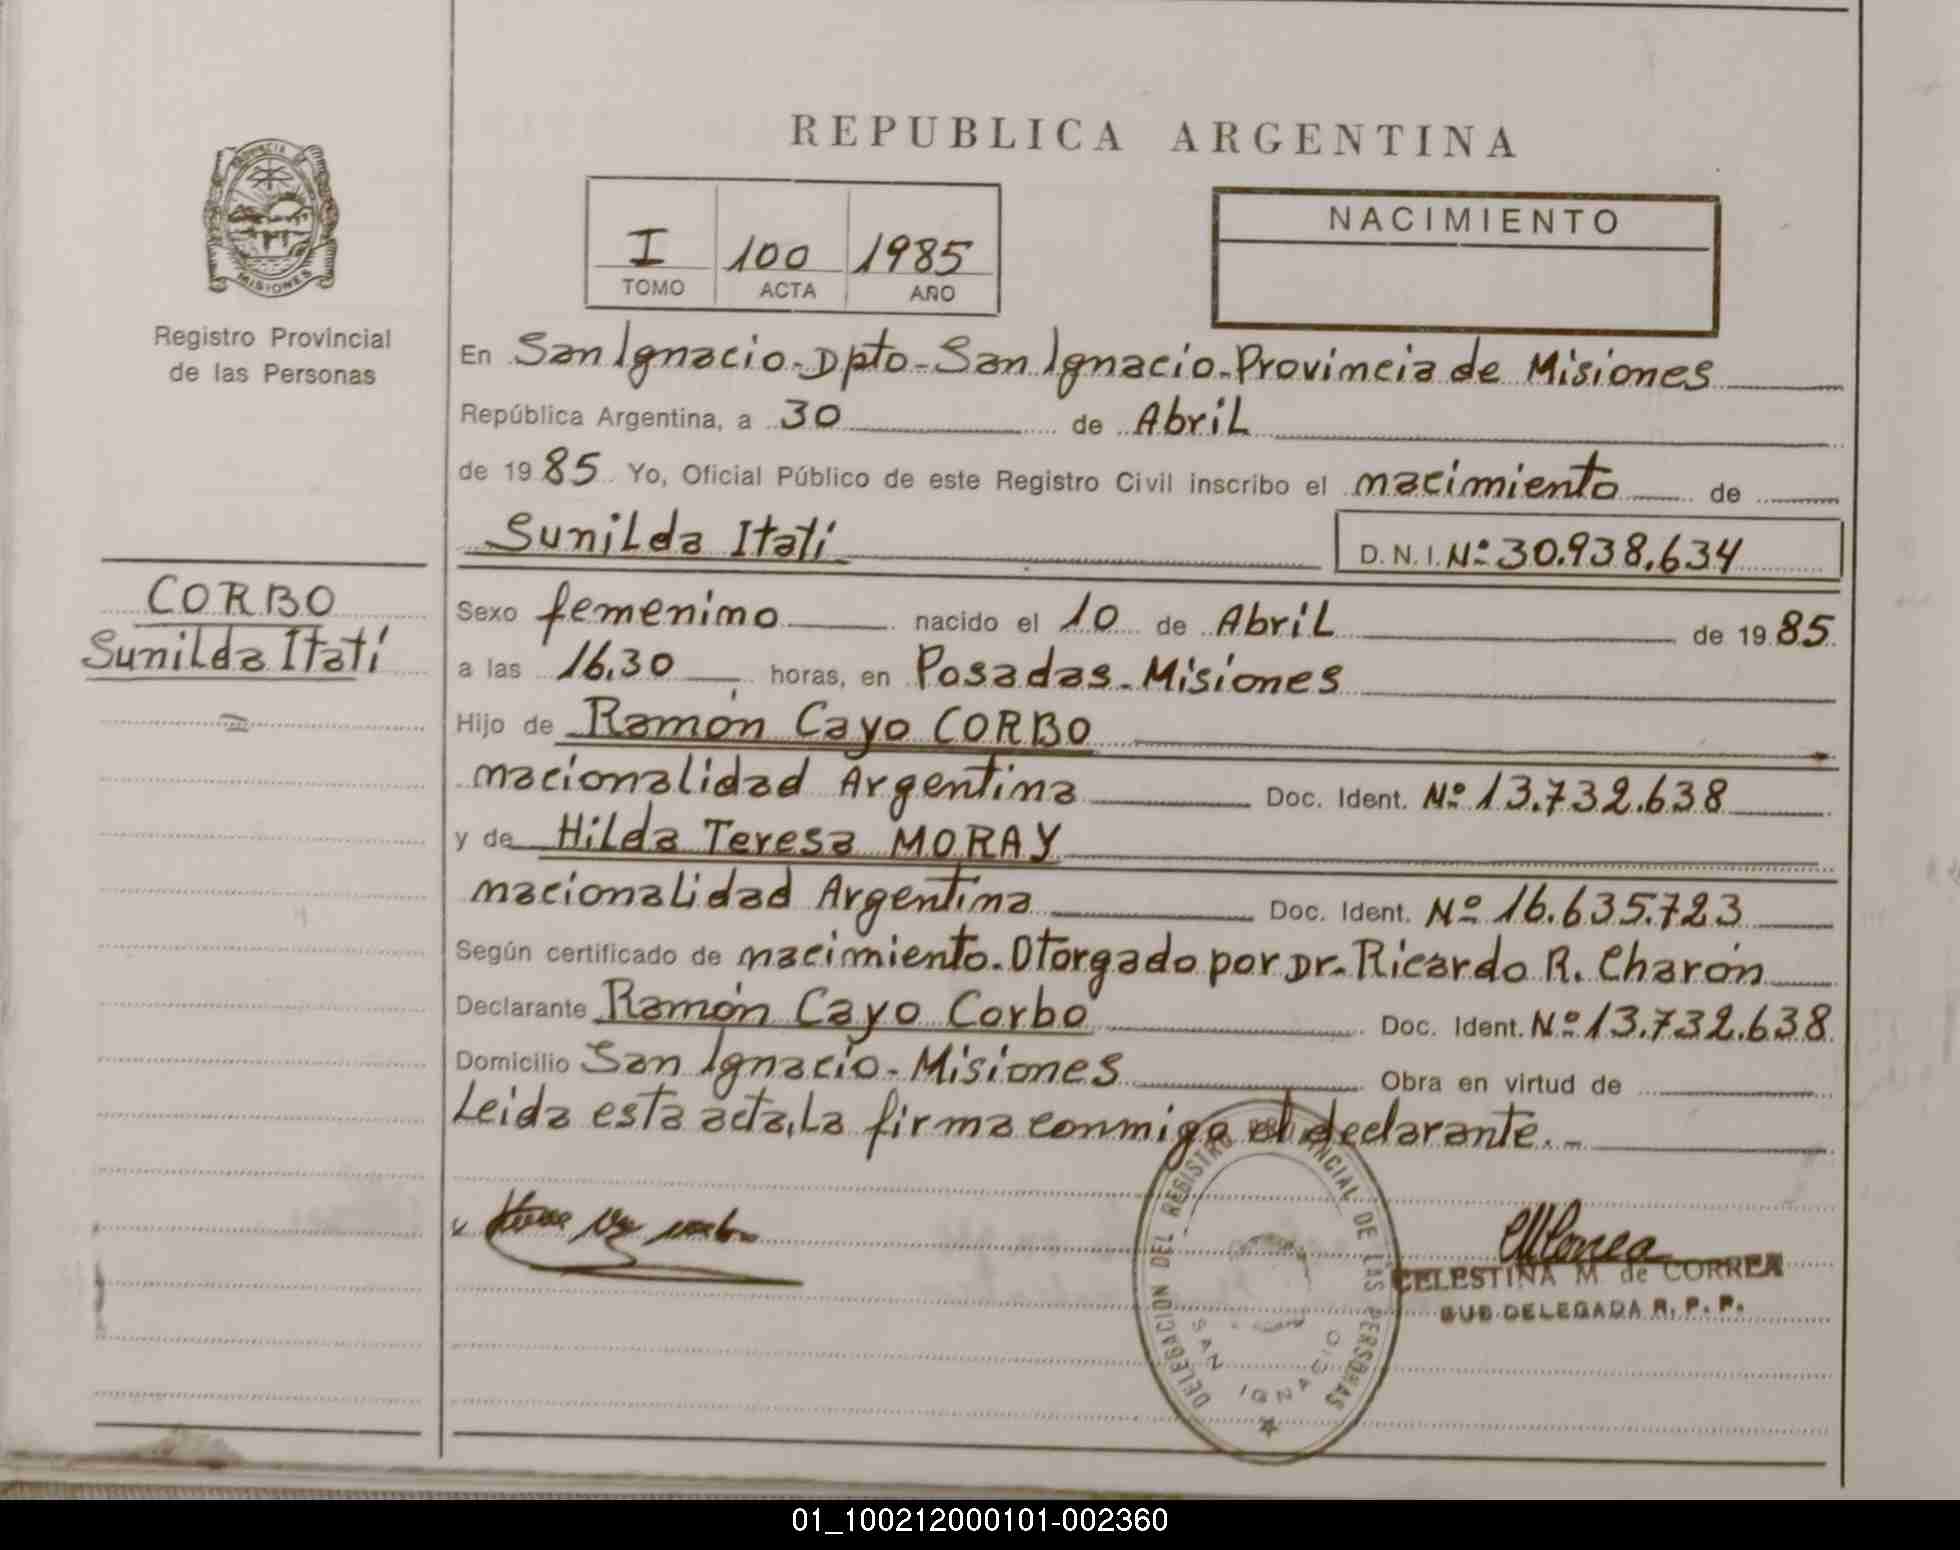 REPUBLICA ARGENTINA
PROVINCIA DE
MISIONES
Registro Provincial
de las Personas
I 100 1985
TOMO ACTA AÑO
NACIMIENTO
En San Ignacio-Dpto-San Ignacio-Provincia de Misiones
República Argentina, a 30 de Abril
de 1985 Yo, Oficial Público de este Registro Civil inscribo el nacimiento de
Sunilda Itatí D.N.I. Nº 30.938.634
CORBO
Sunilda Itatí
Sexo femenino nacido el 10 de Abril de 1985
a las 16.30 horas, en Posadas-Misiones
Hijo de Ramón Cayo CORBO
nacionalidad Argentina Doc. Ident. Nº 13.732.638
y de Hilda Teresa MORAY
nacionalidad Argentina Doc. Ident. Nº 16.635.723
Según certificado de nacimiento. Otorgado por Dr. Ricardo R. Charón
Declarante Ramón Cayo Corbo Doc. Ident. Nº 13.732.638
Domicilio San Ignacio-Misiones Obra en virtud de
Leida esta acta, La firma conmigo el declarante.-
DELEGACION DEL REGISTRO PROVINCIAL DE LAS PERSONAS
SAN IGNACIO
CELESTINA M. de CORREA
SUB DELEGADA R. P. P.
01_100212000101-002360